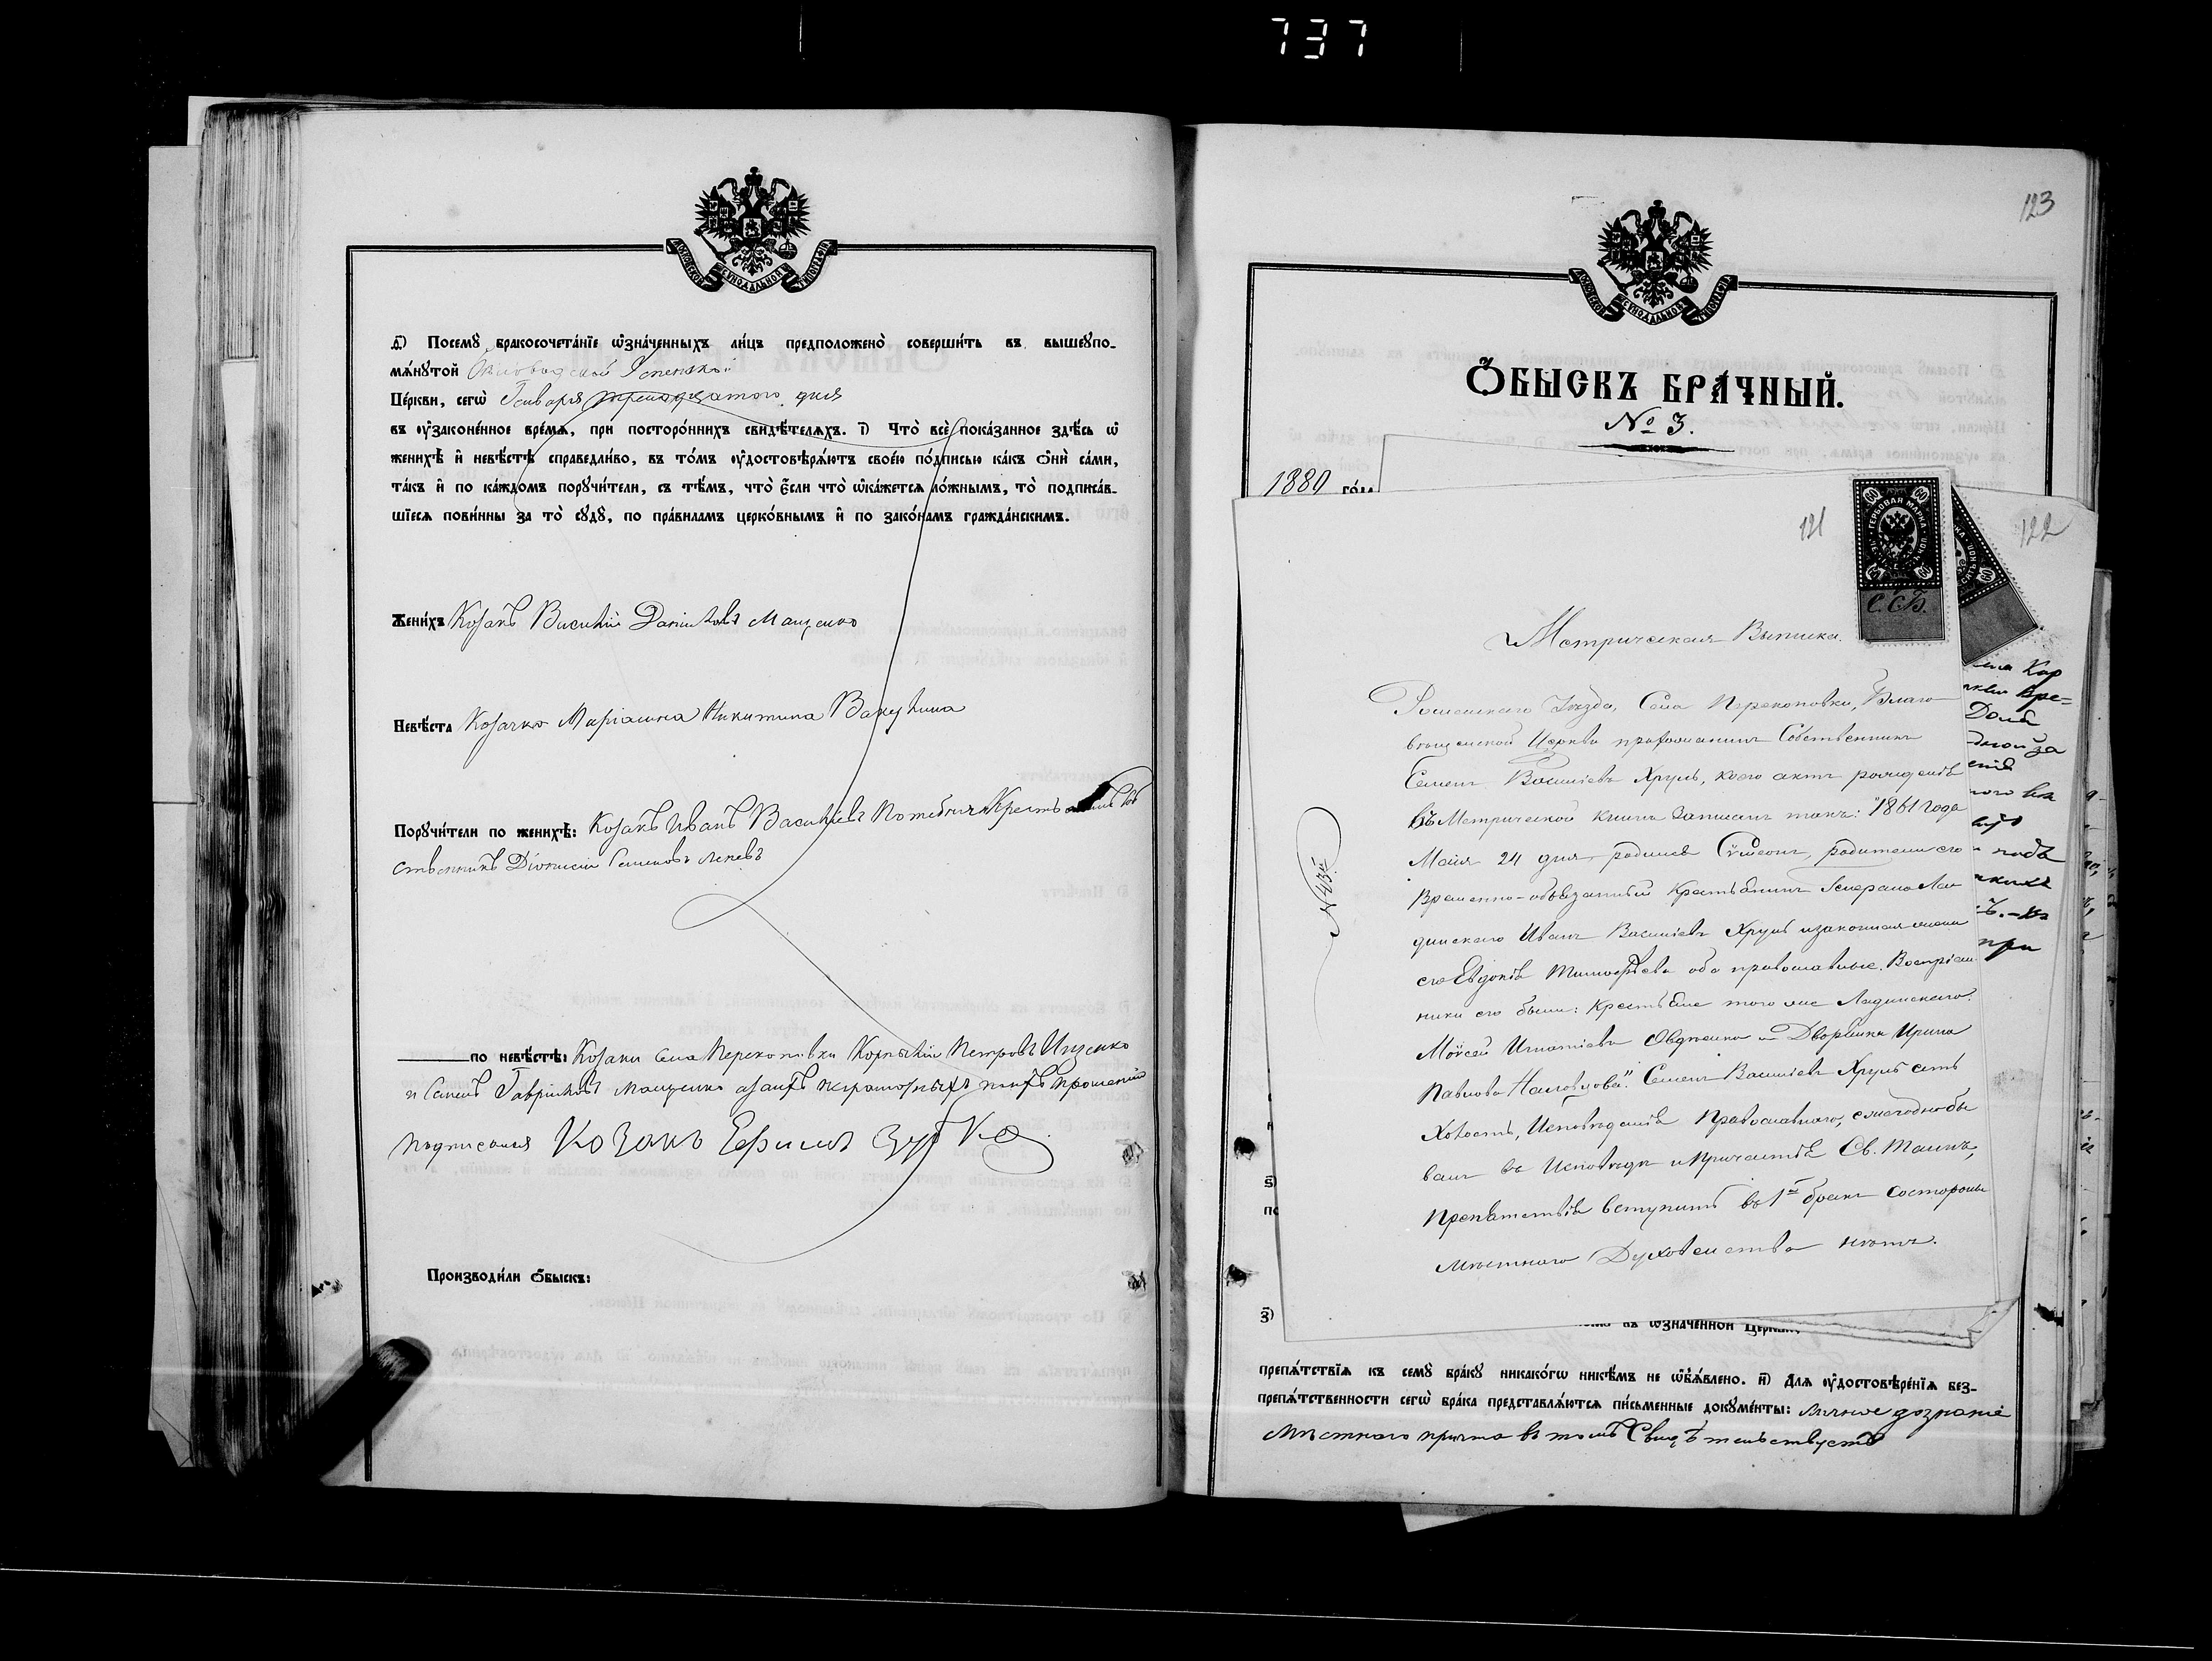 737
МОСКОВСКОЙ СѴНОДАЛЬНОЙ ТИПОГРАФІИ
д҃) Посемꙋ̀ бракосочета́нїе ѡ҆зна́ченныхъ ли́цъ предположено̀ соверши́ть въ вышеꙋпо-
мѧ́нꙋтой Успенской
Це́ркви, сегѡ̀ Генваря тринадцатаго дня
въ ᲂу҆зако́ненное вре́мѧ, при посторо́ннихъ свидѣ́телѧхъ. і҃) Что̀ всѐ пока́занное здѣ́сь ѡ҆
женихѣ̀ и҆ невѣ́стѣ справедли́во, въ то́мъ ᲂу҆достовѣрѧ́ютъ свое́ю по́дписью ка́къ ѻ҆нѝ са́ми,
та́къ и҆ по ка́ждомъ порꙋчи́тели, съ тѣ́мъ, что̀ є҆́сли что̀ ѡ҆ка́жетсѧ ло́жнымъ, то̀ подписа́в-
шїесѧ пови́нны за то̀ сꙋдꙋ̀, по пра́виламъ церко́внымъ и҆ по зако́намъ гражда́нскимъ.
Жени́хъ Козакъ Василій Даніиловъ Мащенко
Невѣ́ста Козачка Маріамна Никитина Вакулина
Порꙋчи́тели по женихѣ̀: Козакъ Иванъ Васильевъ Потебня Крестьянинъ соб
ственникъ Діонисій Семеновъ
по невѣ́стѣ: Козаки села Перекоповки Корнилій Петровъ Ищенко
и Семенъ Гавриловъ Мащенко а за ихъ неграмотныхъ по ихъ прошенію
подписался Козакъ Ефимъ Зубко
Производи́ли ѻ҆́быскъ:
123
МОСКОВСКОЙ СѴНОДАЛЬНОЙ ТИПОГРАФІИ
Ѻ҆́быскъ бра́чный.
№ 3.
1880 го́да
121
122
ГЕРБОВАЯ МАРКА
60
С.С.Б.
Метрическая Выписка.
Роменскаго Уѣзда, Села Перекоповки, Благо
вѣщенской Церкви прихожанинъ Собственникъ
Семенъ Васильевъ Хруль, коего актъ рожденія
въ Метрической книгѣ записанъ такъ: "1861 года
Мая 24 дня родился Сѵмеонъ, родители его
Временно-обязанный Крестьянинъ Генерала Ла
динскаго Иванъ Васильевъ Хруль и законная жена
его Евдокія Тимофѣева оба православные. Воспріем
ники его были: крестьяне того же Ладинскаго
Моѵсей Игнатіевъ Овдѣенко и Дворянка Ирина
Павлова Семенъ Васильевъ Хруль есть
Холостъ, Исповѣданія Православнаго, ежегодно бы
валъ въ Исповѣди и Причастіи Св. Таинъ,
Препятствія вступить въ 1й бракъ со стороны
мѣстнаго Духовенства нѣтъ.
№ 43й
ѕ҃)
з҃)
въ ѡ҆зна́ченной Це́ркви,
препѧ́тствїѧ къ семꙋ̀ бра́кꙋ никако́гѡ никѣ́мъ не ѡ҆б̾ѧ́влено. и҃) Длѧ ᲂу҆достовѣре́нїѧ без-
препѧ́тственности сегѡ̀ бра́ка представлѧ́ютсѧ пи́сьменные докꙋме́нты: личное дознаніе
мѣстнаго причта въ томъ Свидѣтельствуетъ